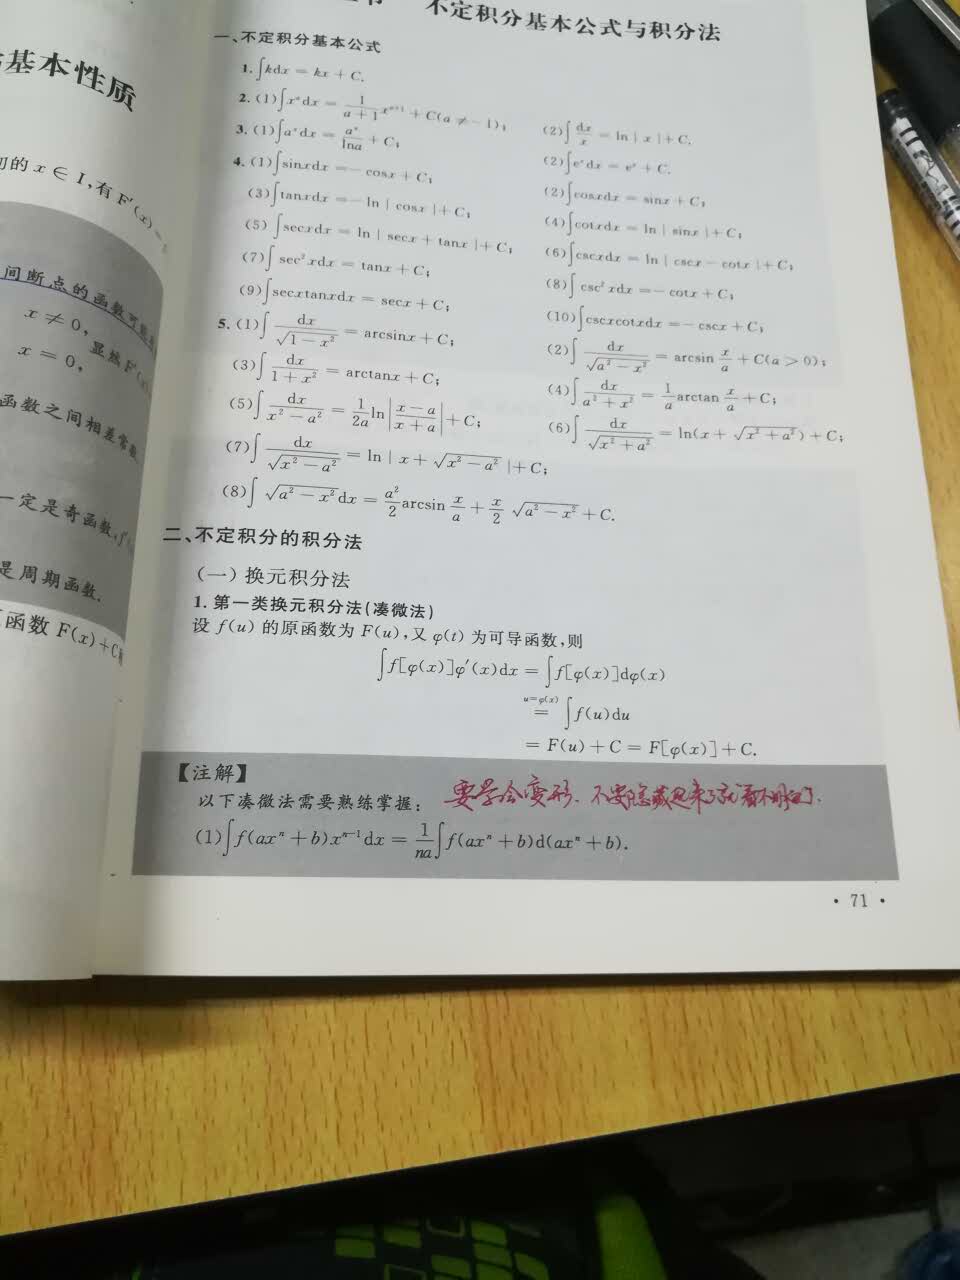 基本性质
的 x ∈ I,有 F′(x)=
间断点的函数可能
x ≠ 0,
显然 F′(x)
x = 0,
函数之间相差常数
一定是奇函数,f
是周期函数.
函数 F(x)+C
不定积分基本公式与积分法
一、不定积分基本公式
1. ∫kdx = kx + C.
2. (1)∫xᵃdx = 1/(a+1) xᵃ⁺¹ + C(a ≠ −1); (2)∫dx/x = ln|x|+C.
3. (1)∫aˣdx = aˣ/lna + C; (2)∫eˣdx = eˣ + C.
4. (1)∫sinxdx = −cosx + C; (2)∫cosxdx = sinx + C;
(3)∫tanxdx = −ln|cosx|+C; (4)∫cotxdx = ln|sinx|+C;
(5)∫secxdx = ln|secx + tanx|+C; (6)∫cscxdx = ln|cscx − cotx|+C;
(7)∫sec²xdx = tanx + C; (8)∫csc²xdx = −cotx + C;
(9)∫secxtanxdx = secx + C; (10)∫cscxcotxdx = −cscx + C;
5. (1)∫dx/√(1−x²) = arcsinx + C; (2)∫dx/√(a²−x²) = arcsin x/a + C(a > 0);
(3)∫dx/(1+x²) = arctanx + C; (4)∫dx/(a²+x²) = 1/a arctan x/a + C;
(5)∫dx/(x²−a²) = 1/2a ln|(x−a)/(x+a)| + C; (6)∫dx/√(x²+a²) = ln(x + √(x²+a²)) + C;
(7)∫dx/√(x²−a²) = ln|x + √(x²−a²)|+C;
(8)∫√(a²−x²)dx = a²/2 arcsin x/a + x/2 √(a²−x²) + C.
二、不定积分的积分法
(一) 换元积分法
1. 第一类换元积分法(凑微法)
设 f(u) 的原函数为 F(u),又 φ(t) 为可导函数,则
∫f[φ(x)]φ′(x)dx = ∫f[φ(x)]dφ(x)
u=φ(x)
= ∫f(u)du
= F(u) + C = F[φ(x)] + C.
【注解】
以下凑微法需要熟练掌握:
要学会变形. 不要隐藏起来了就看不明白了.
(1)∫f(axⁿ + b)xⁿ⁻¹dx = 1/na ∫f(axⁿ + b)d(axⁿ + b).
· 71 ·